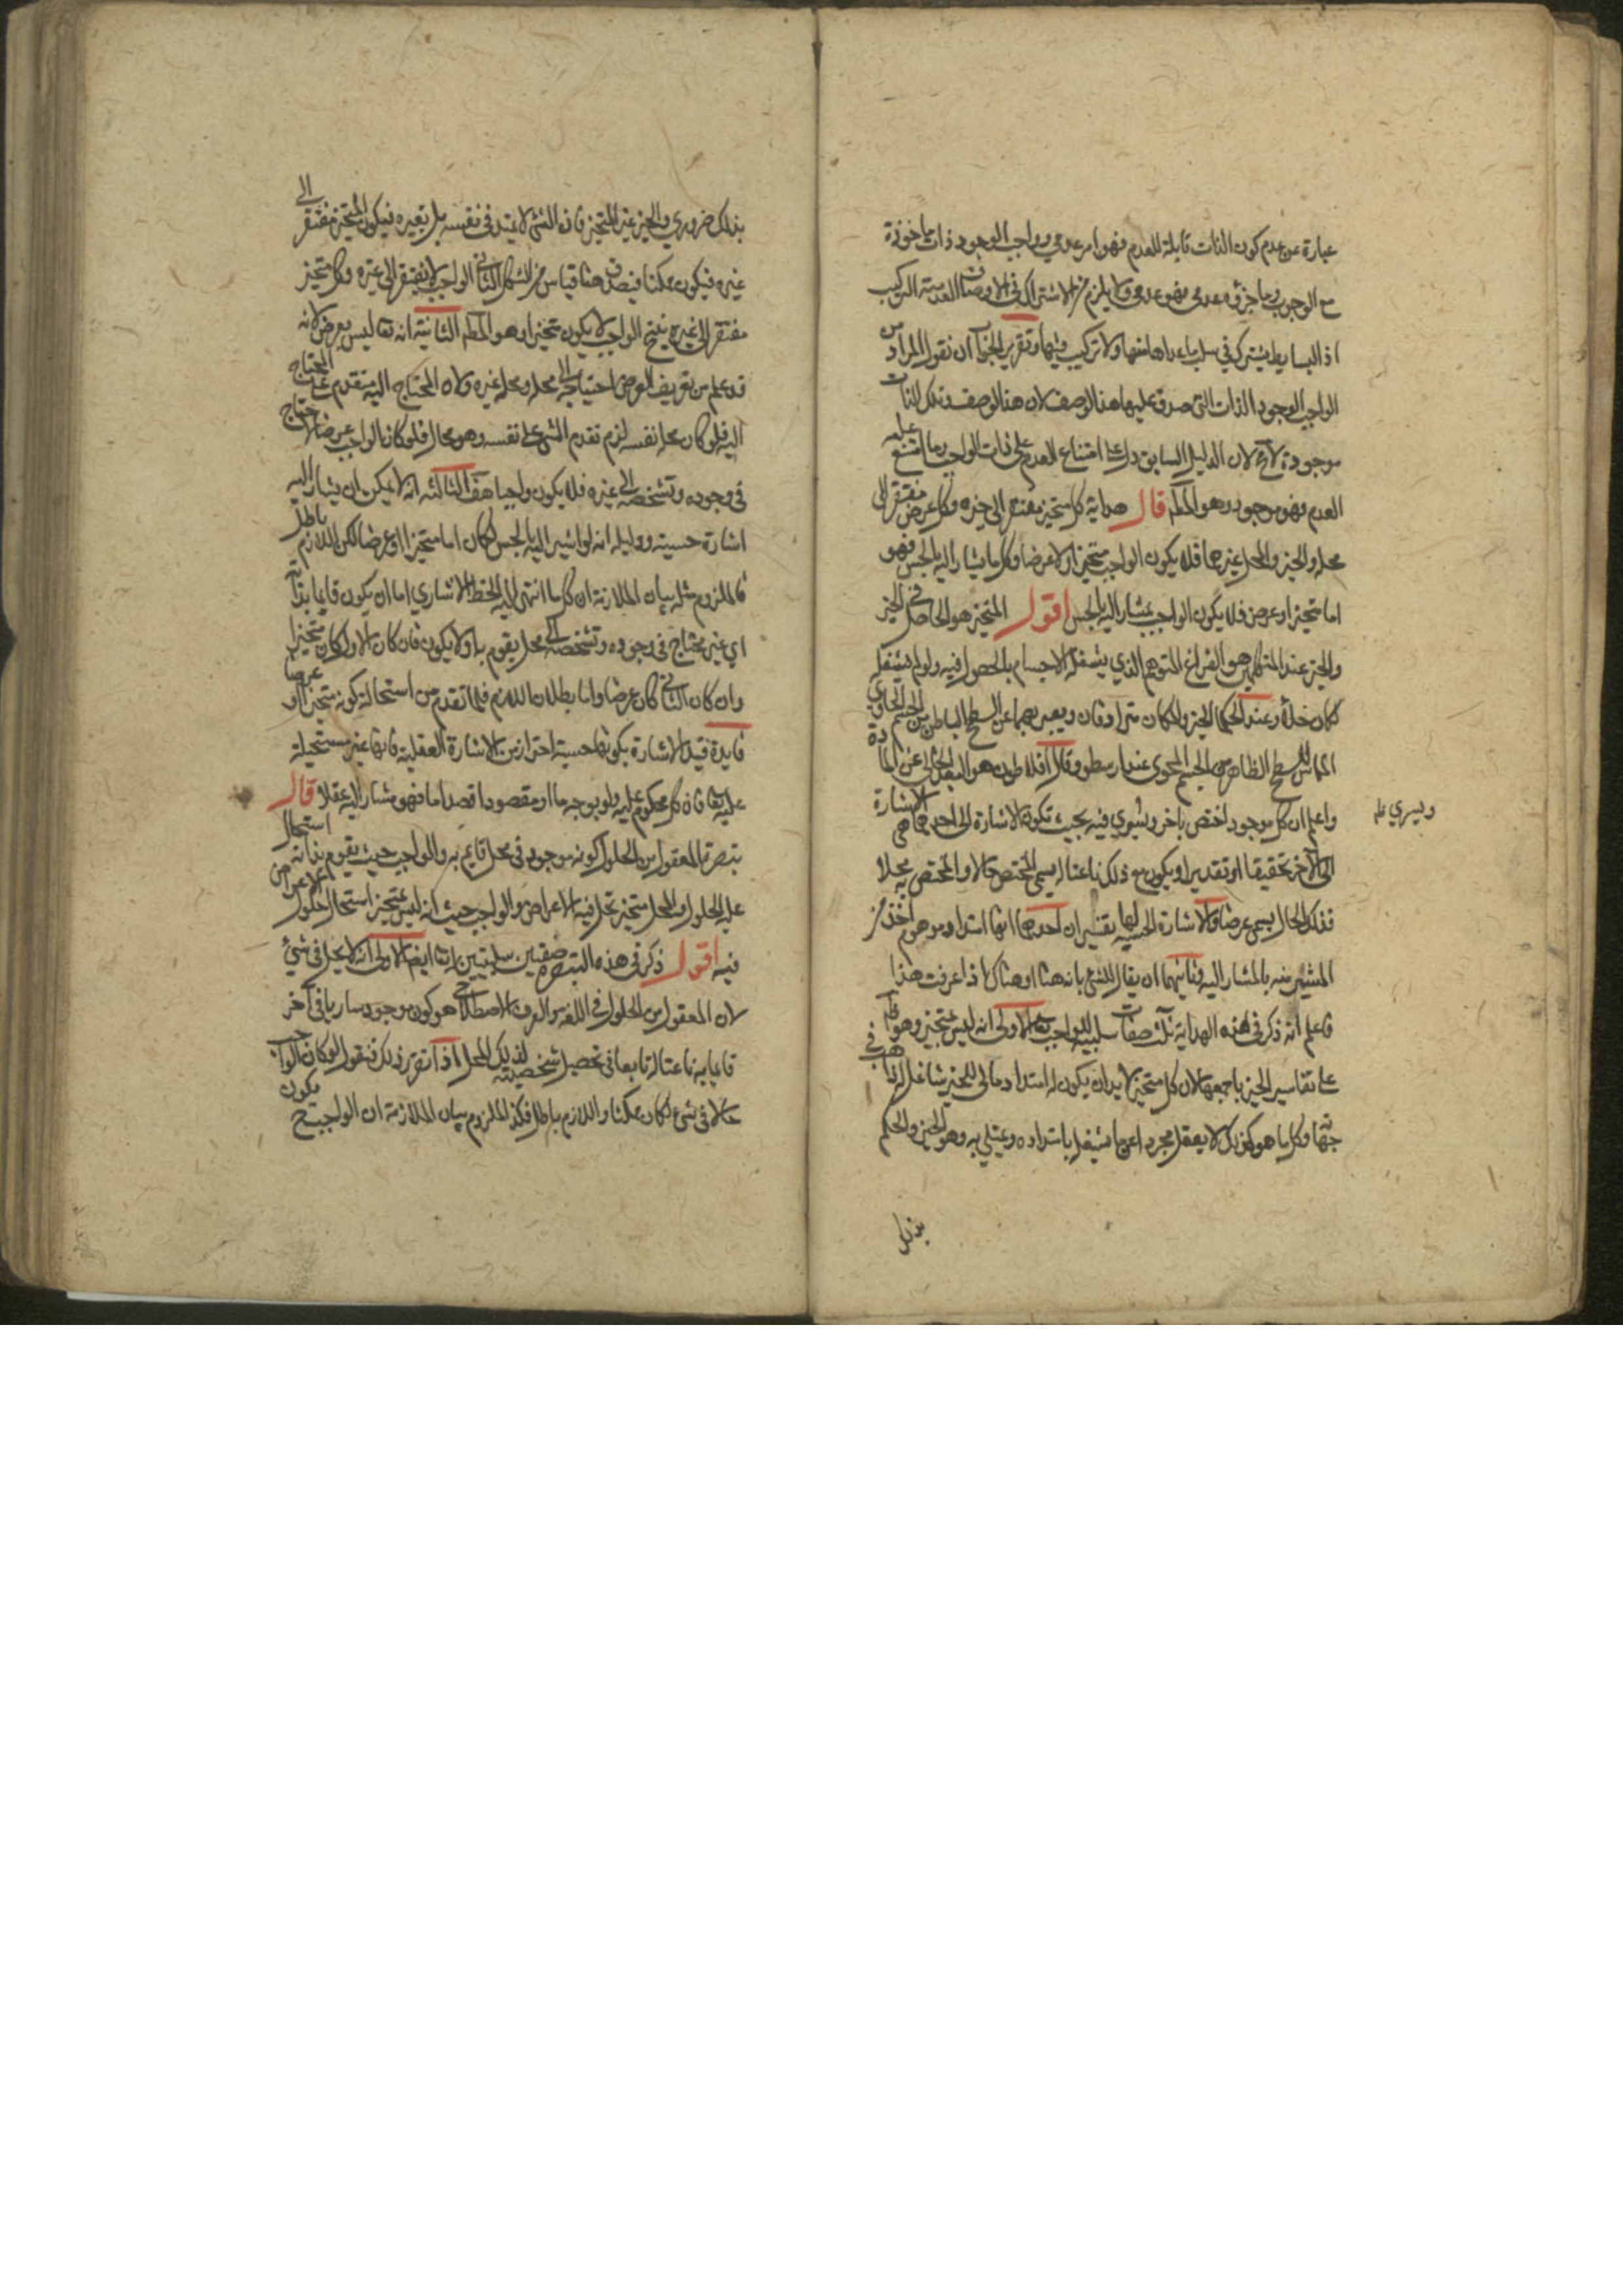 عبارة عن عدم كون الذات قابلة للعدم فهو امر عدمي وواجب الوجود ذات ماخوذة
مع الوجوب وما جزؤه عدمي فهو عدمي ولا يلزم من الاشتراك في الاوصاف العدمية التركيب
اذ البسايط يشترك في سلب ما عداها عنها ولا تركيب فيها وتقرير الجواب ان نقول المراد من
الواجب الوجود الذات التي صدق عليها هذا الوصف لان هذا الوصف وتلك الذات
موجودة لان الدليل السابق دل على امتناع العدم على ذات الواجب وما امتنع عليه
العدم فهو موجود وهو المط قال هداية كل متحيز مفتقر الى حيزه وكل عرض مفتقر الى
محله والحيز والمحل غيرهما فلا يكون الواجب متحيزا ولا عرضا وكل ما يشار اليه بالحس فهو
اما متحيز او عرض فلا يكون الواجب بمشار اليه بالحس اقول المتحيز هو الحاصل في الحيز
والحيز عند المتكلمين هو الفراغ المتوهم الذي يشغله الاجسام بالحصول فيه ولو لم يشغله
لكان خلأ وعند الحكما الحيز والمكان مترادفان ويعبر بهما عن السطح الباطن من الجسم الحاوي
المماس للسطح الظاهر من الجسم المحوى عند ارسطو وقال افلاطون هو البعد الخالي عن المادة
واعلم ان كل موجود اختص باخر ويسري فيه بحيث تكون الاشارة الى احدهما هي الاشارة
الى الآخر تحقيقا او تقديرا ويكون مع ذلك ناعتا له يسمى المختص حالا والمختص به محلا
فذلك الحال يسمى عرضا والاشارة الحسية لها تفسيران احدهما انها امتداد موهوم اخذ من
المشير منه بالمشار اليه وثانيهما ان يقال للشئ بانه هنا او هناك اذا عرفت هذا
فاعلم انه ذكر في هذه الهداية ثلث صفات سلبية للواجب تعالى الاولى انه ليس بمتحيز وهو ظ
على تفاسير الحيز باجمعها لان كل متحيز لا بد ان يكون له امتداد ومالى للحيز شاغل له ذاهب في
جهاته وكل ما هو كذلك لا يعقل مجردا عن ما يشغل بامتداده ويمتلي به وهو الحيز والحكم
بذلك
ويسري
بذلك ضروري والحيز غير المتحيز فان الشئ لا يمتد في نفسه بل بغيره فيكون المتحيز مفتقرا الى
غيره فيكون ممكنا فيصدق هنا قياس من الشكل الثاني الواجب لا يفتقر الى غيره وكل متحيز
مفتقر الى غيره ينتج الواجب لا يكون متحيزا وهو المط الثانية انه تعا ليس بعرض لانه
قد علم من تعريف العرض احتياجه الى محله ومحله غيره ولان المحتاج اليه متقدم على المحتاج
اليه فلو كان محله نفسه لزم تقدم الشئ على نفسه وهو محال فلو كان الواجب عرضا لاحتاج
في وجوده وتشخصه الى غيره فلا يكون واجبا هف الثالثة انه لا يمكن ان يشار اليه
اشارة حسية ودليله انه لو اشير اليه بالحس لكان اما متحيزا او عرضا لكن اللازم باطل
فالملزوم مثله بيان الملازمة ان كل ما انتهى اليه الخط الاشاري اما ان يكون قايما بذاته
اي غير محتاج في وجوده وتشخصه الى محل يقوم به اولا يكون فان كان الاول كان متحيزا
وان كان الثاني كان عرضا واما بطلان اللازم فلما تقدم من استحالة كونه متحيزا او عرضا
فايدة قيد الاشارة بكونها حسية احتراز من الاشارة العقلية فانها غير مستحيلة
عليه تعا فان كل محكوم عليه ولو بوجه ما او مقصود قصدا ما فهو مشار اليه عقلا قال
تبصرة المعقول من الحلول كونه موجود في محل قايم به والواجب حيث يقوم بذاته استحال
عليه الحلول والمحل متحيز تحل فيه الاعراض والواجب حيث انه ليس بمتحيز استحال حلول الاعراض
فيه اقول ذكر في هذه التبصرة صفتين سلبيتين له تعا ايضا الاولى انه لا يحل في شئ
لان المعقول من الحلول في اللغة والعرف الاصطلاحي هو كون موجود ساريا في آخر
قايما به ناعتا له تابعا في تحصيل شخصيته لذلك المحل اذا تقرر ذلك فنقول لو كان الواجب
حالا في شئ لكان ممكنا واللازم باطل فكذا الملزوم بيان الملازمة ان الواجب ح يكون